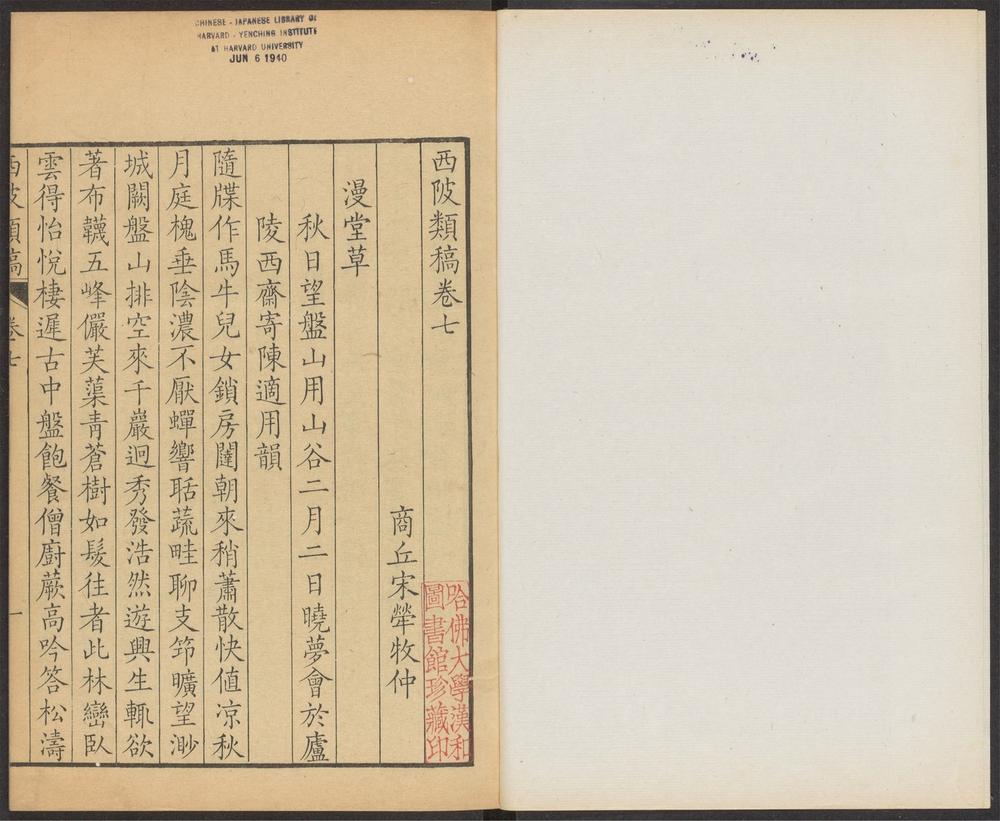 CHINESE - JAPANESE LIBRARY OF
HARVARD - YENCHING INSTITUTE
AT HARVARD UNIVERSITY
JUN 6 1940
西陂類稿卷七
商丘宋犖牧仲
漫堂草
秋日望盤山用山谷二月二日曉夢會於廬
陵西齋寄陳適用韻
隨牒作馬牛兒女鎖房闥朝來稍蕭散快值凉秋
月庭槐垂陰濃不厭蟬響聒蔬畦聊支筇曠望渺
城闕盤山排空來千巖迥秀發浩然遊興生輒欲
著布韈五峰儼芙蕖青蒼樹如髮往者此林巒臥
雲得怡悅棲遲古中盤飽餐僧廚蕨高吟答松濤
西陂類稿 卷七 一
哈佛大學漢和
圖書館珍藏印